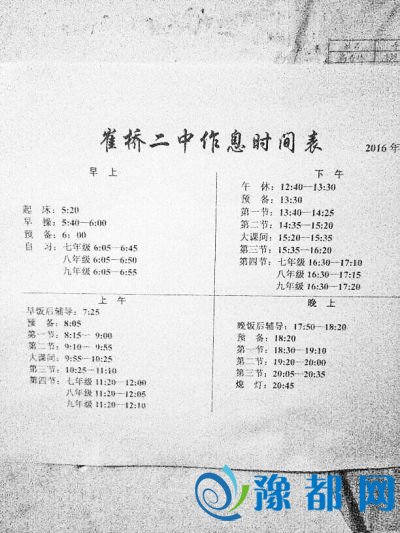 崔桥二中作息时间表
2016年
早上
起 床：5:20
早 操：5:40—6:00
预 备：6：00
自 习：七年级 6:05—6:45
八年级 6:05—6:50
九年级 6:05—6:55
下午
午 休：12:40—13:30
预 备：13:30
第一节：13:40—14:25
第二节：14:35—15:20
大课间：15:20—15:35
第三节：15:35—16:20
第四节：七年级 16:30—17:10
八年级 16:30—17:15
九年级 16:30—17:20
上午
早饭后辅导：7:25
预 备：8:05
第一节：8:15— 9:00
第二节：9:10— 9:55
大课间：9:55—10:25
第三节：10:25—11:10
第四节：七年级 11:20—12:00
八年级 11:20—12:05
九年级 11:20—12:10
晚上
晚饭后辅导：17:50—18:20
预 备：18:20
第一节：18:30—19:10
第二节：19:20—20:00
第三节：20:05—20:35
熄 灯：20:45
豫都网